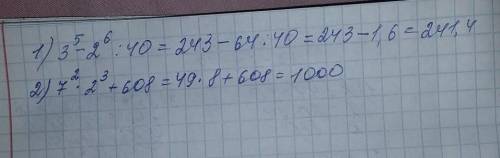 1) 3⁵-2⁶:40=243-64:40=243-1,6=241,4
2) 7²·2³+608=49·8+608=1000